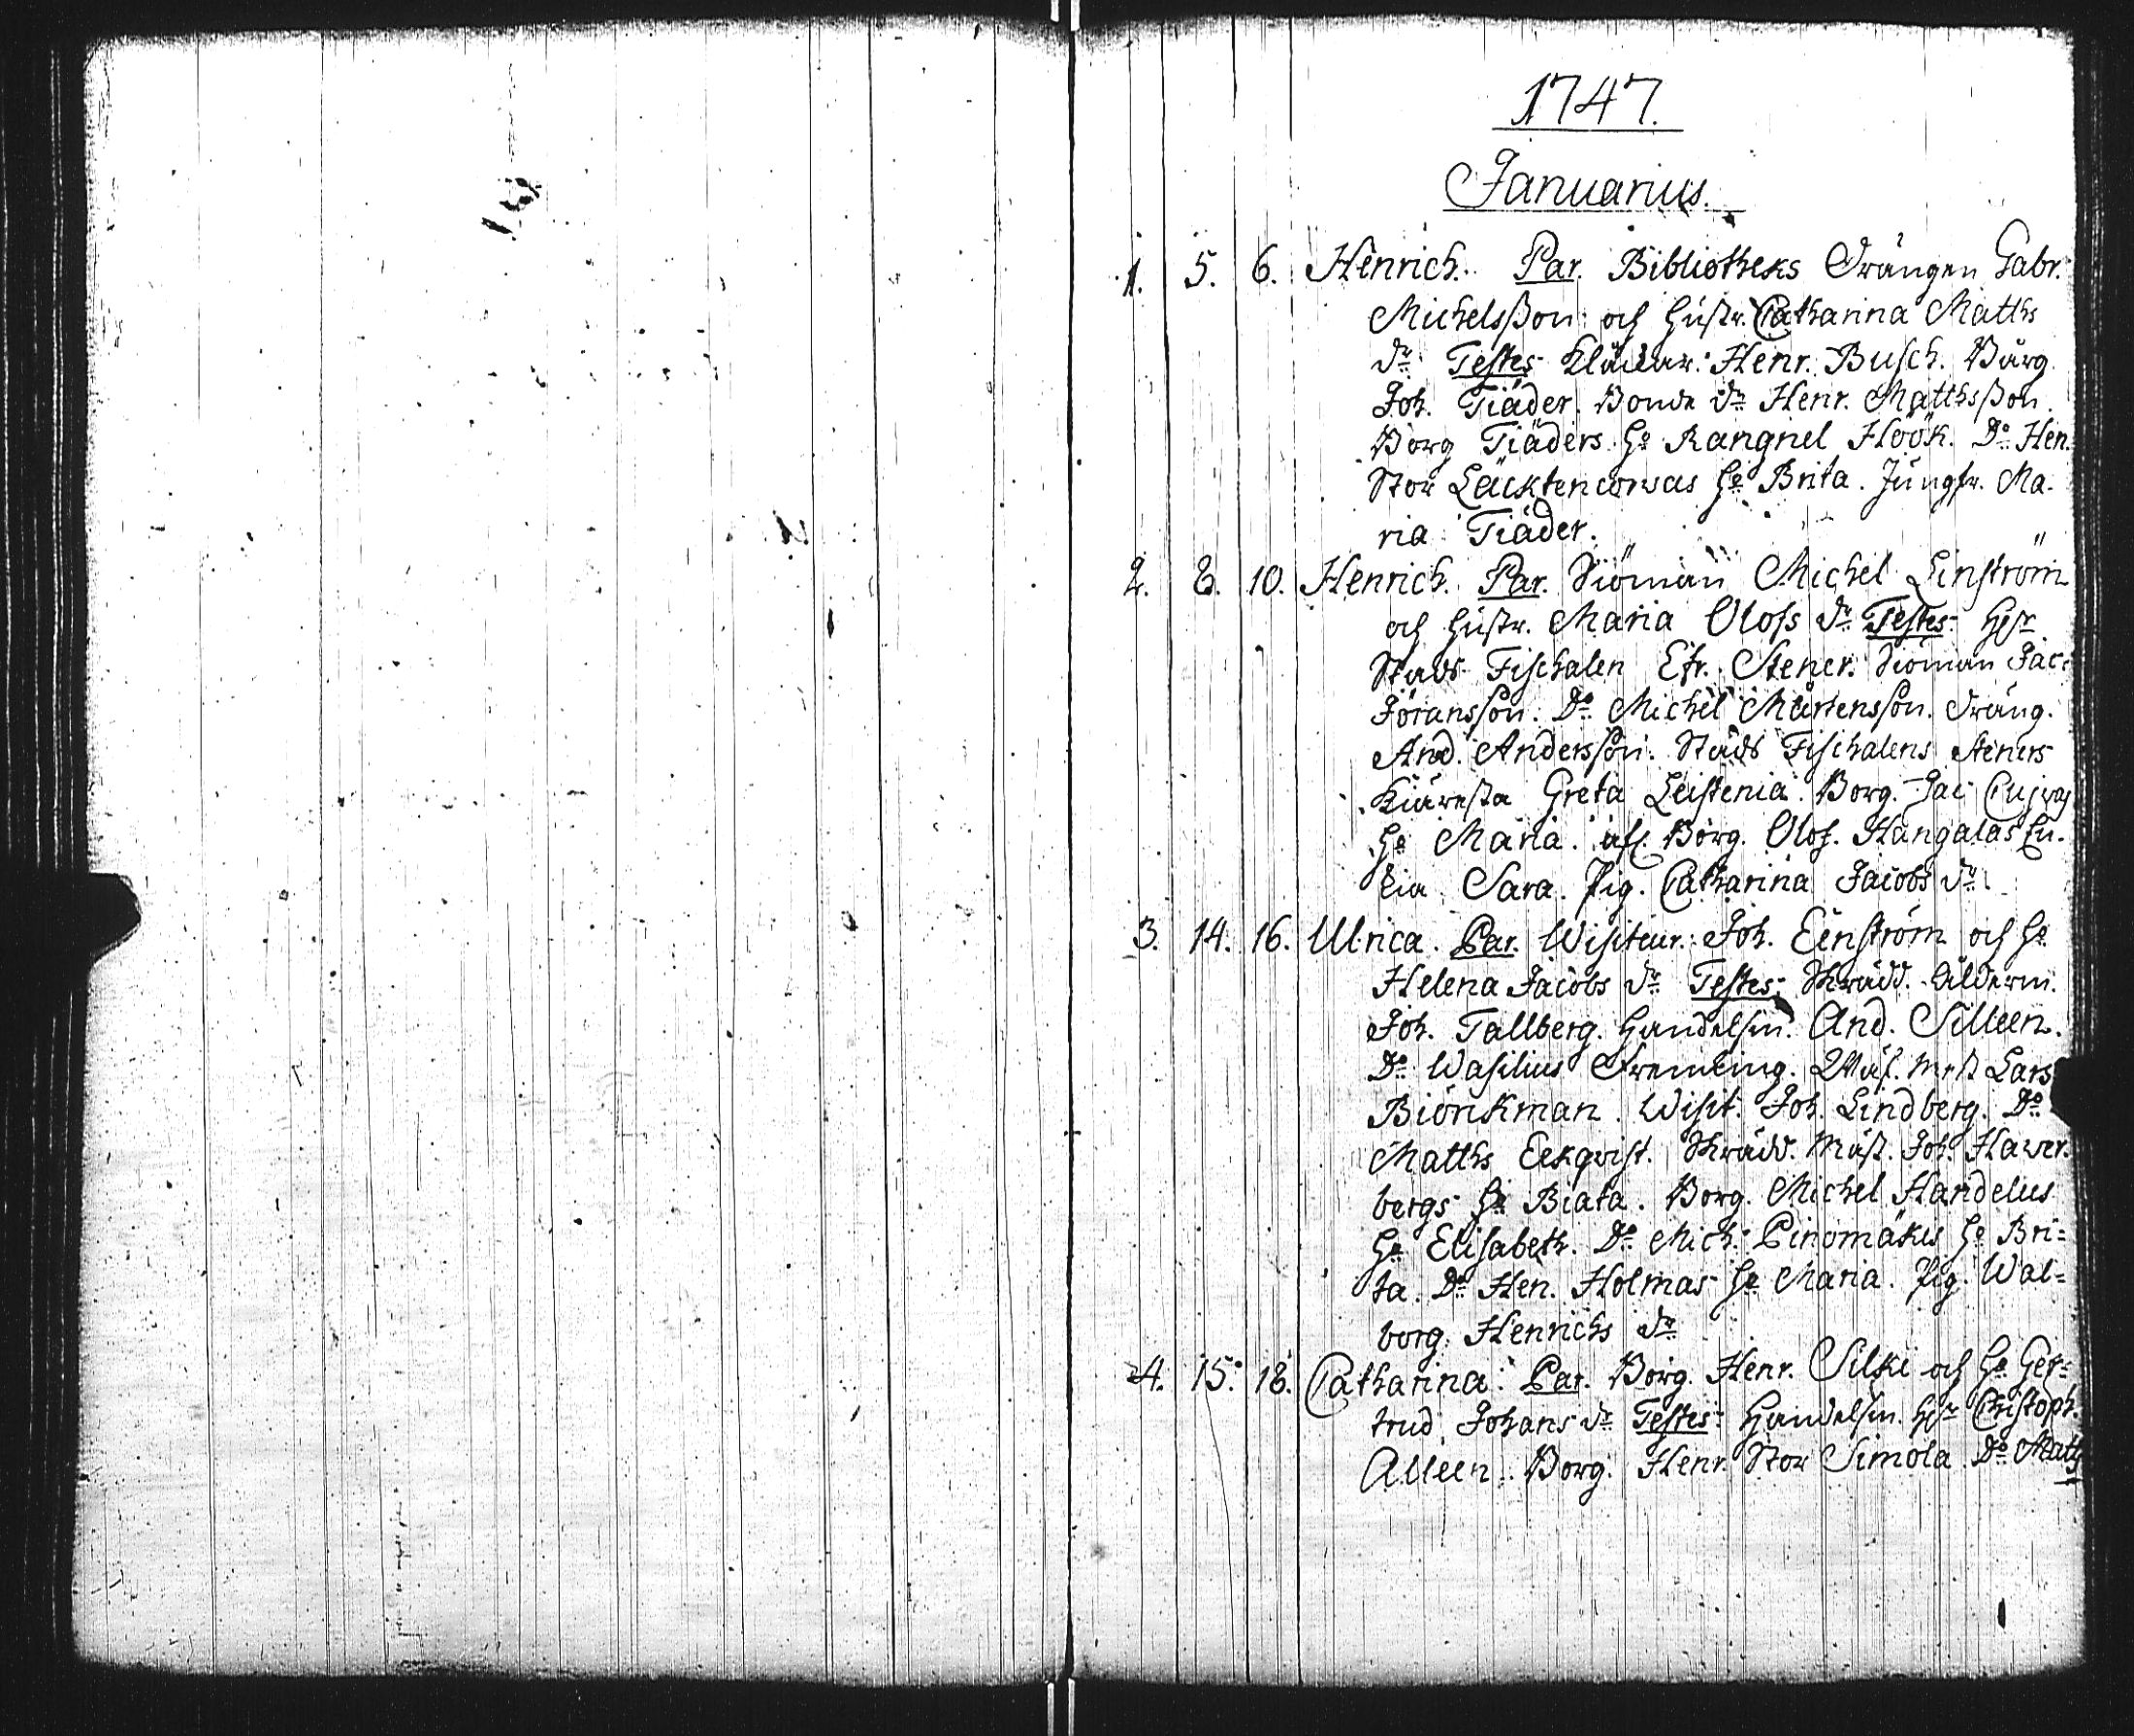 1747.
Januarius.
1. 5. 6. Henrich. Par. Bibliotheks Drängen Gabr.
Michelsson och hustr. Catharina Matths
dr. Testes Klåckar: Henr. Busch. Borg
Joh. Tiäder. Bonde dn Henr. Matthsson.
Borg Tiäders h. Rangnel Höök. Do Hen.
Stor Läcktencorvas h. Brita. Jungfr. Ma-
ria Tiäder.
2. 8. 10. Henrich. Par. Siöman Michel Linström
och hustr. Maria Olofs dr. Testes: Hr
Stads Fischalen Efr. Stener. Siöman Jac:
Jöransson. Do Michel Mårtensson. Dräng.
And. Andersson. Stads Fischalens Steners
Kiäresta Greta Leistenia. Borg. Jac
h. Maria. afl. Borg. Olof. Hangalas En-
kia Sara. Pig. Catharina Jacobs dr.
3. 14. 16. Ulrica. Par. Visiteur. Joh. Enström och h.
Helena Jacobs dr. Testes: Skrädd. Ålderm.
Joh. Tallberg. Handelsm. And. Silleen.
Do Wasilius Fremling. Mest Lars
Biörkman. Visit. Joh. Lindberg. Do
Matths Eekqvist. Skrädd. Mäst. Joh. Haver-
bergs h. Biata. Borg. Michel Handelus
h. Elisabeth. Do Mich. Pinomäkis h. Bri=
ta. Do Hen. Holmas h. Maria. Pig. Wal=
borg Henrichs dr.
4. 15. 18. Catharina. Par. Borg. Henr. Silki och h. Ger=
trud Johans dr. Testes: Handelsm. Hr Christoph.
Alleen. Borg. Henr. Stor Simola Do Matts